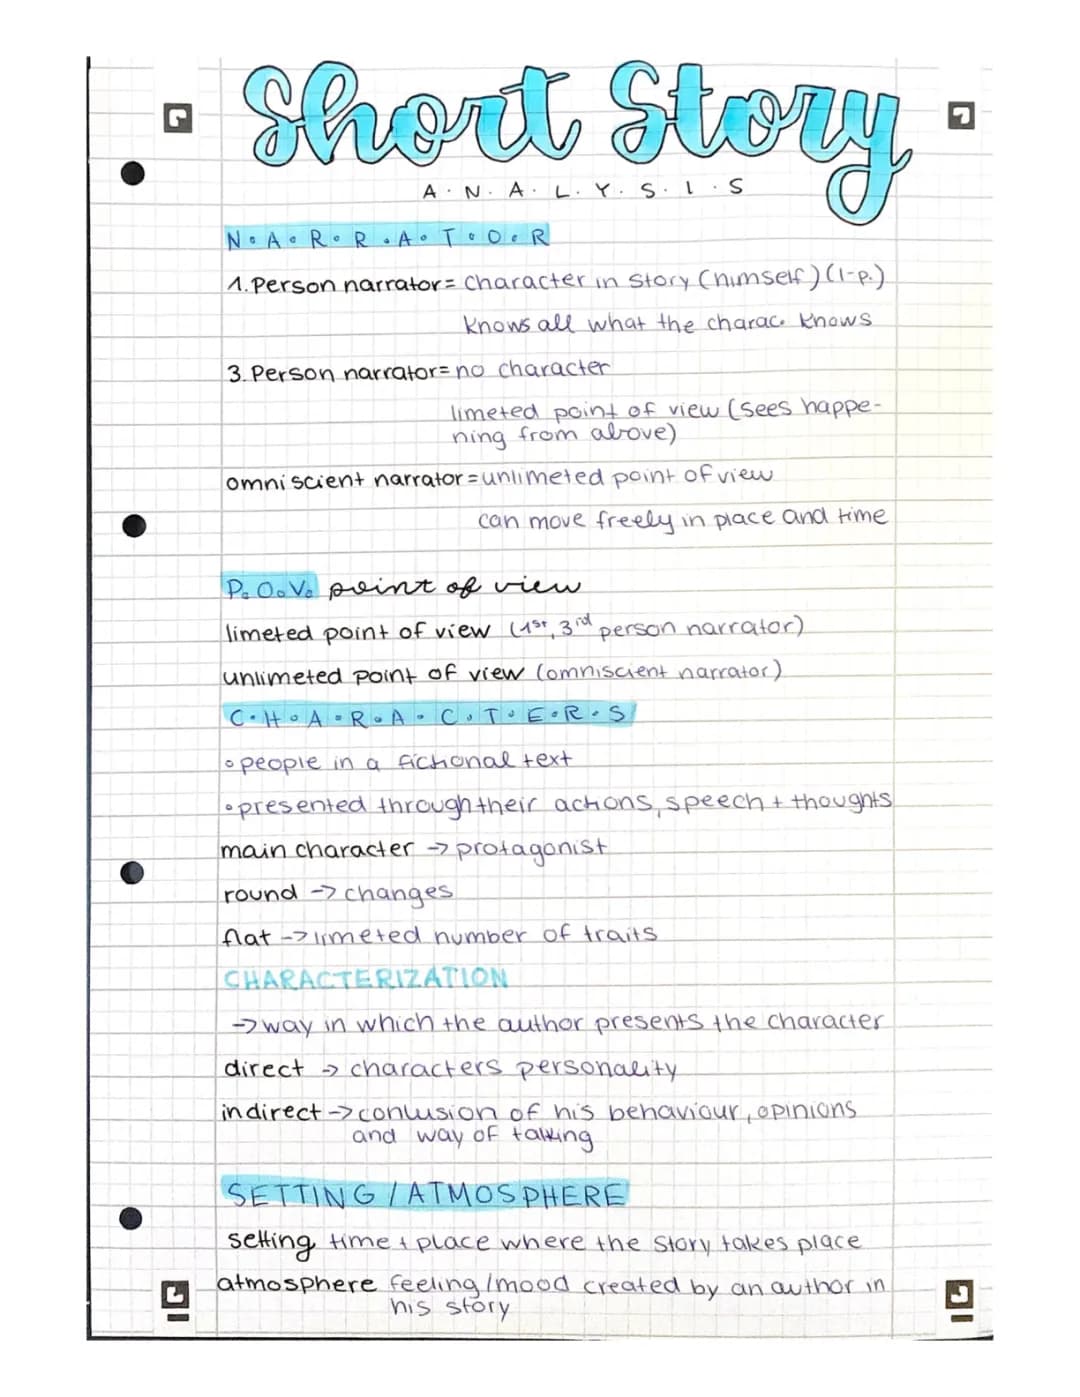 Short Story
A.N.A.L.Y.S.I.S
N.A.R.R.A.T.O.R
1. Person narrator = character in story (himself) (1-p.)
knows all what the charac. knows
3. Person narrator = no character
limeted point of view (sees happe-
ning from above)
omniscient narrator = unlimeted point of view
can move freely in place and time
P.O.V. point of view
limeted point of view (1st, 3rd person narrator)
unlimeted point of view (omniscient narrator)
C.H.A.R.A.C.T.E.R.S
• people in a fictional text
• presented through their actions, speech + thoughts
main character -> protagonist
round -> changes
flat -> limeted number of traits
CHARACTERIZATION
-> way in which the author presents the character
direct -> characters personality
indirect -> conlusion of his behaviour, opinions
and way of talking
SETTING / ATMOSPHERE
setting time + place where the story takes place
atmosphere feeling/mood created by an author in
his story